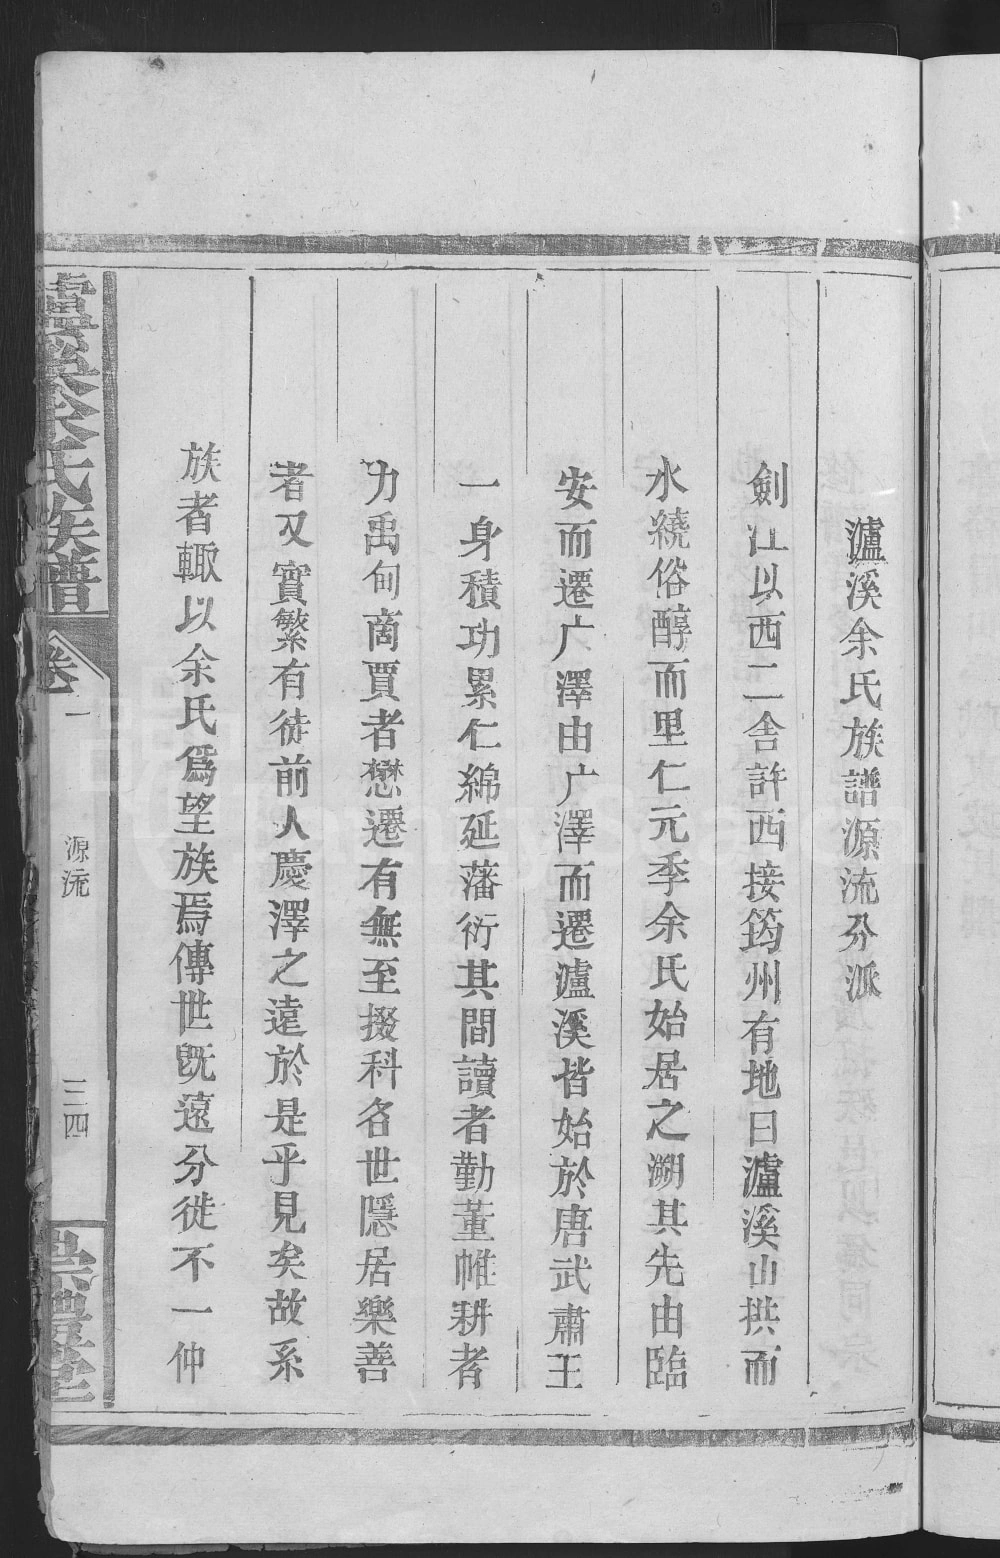 瀘溪余氏族譜源流分派
劍江以西二舍許西接筠州有地曰瀘溪山拱而
水繞俗醇而里仁元季余氏始居之溯其先由臨
安而遷广澤由广澤而遷瀘溪皆始於唐武肅王
一身積功累仁綿延藩衍其間讀者勤董帷耕者
力禹甸啇賈者懋遷有無至掇科名世隱居樂善
者又實繁有徒前人慶澤之遠於是乎見矣故系
族者輙以余氏爲望族焉傳世既遠分徙不一仲
瀘溪余氏族譜
卷一
源流
三四
崇禮堂